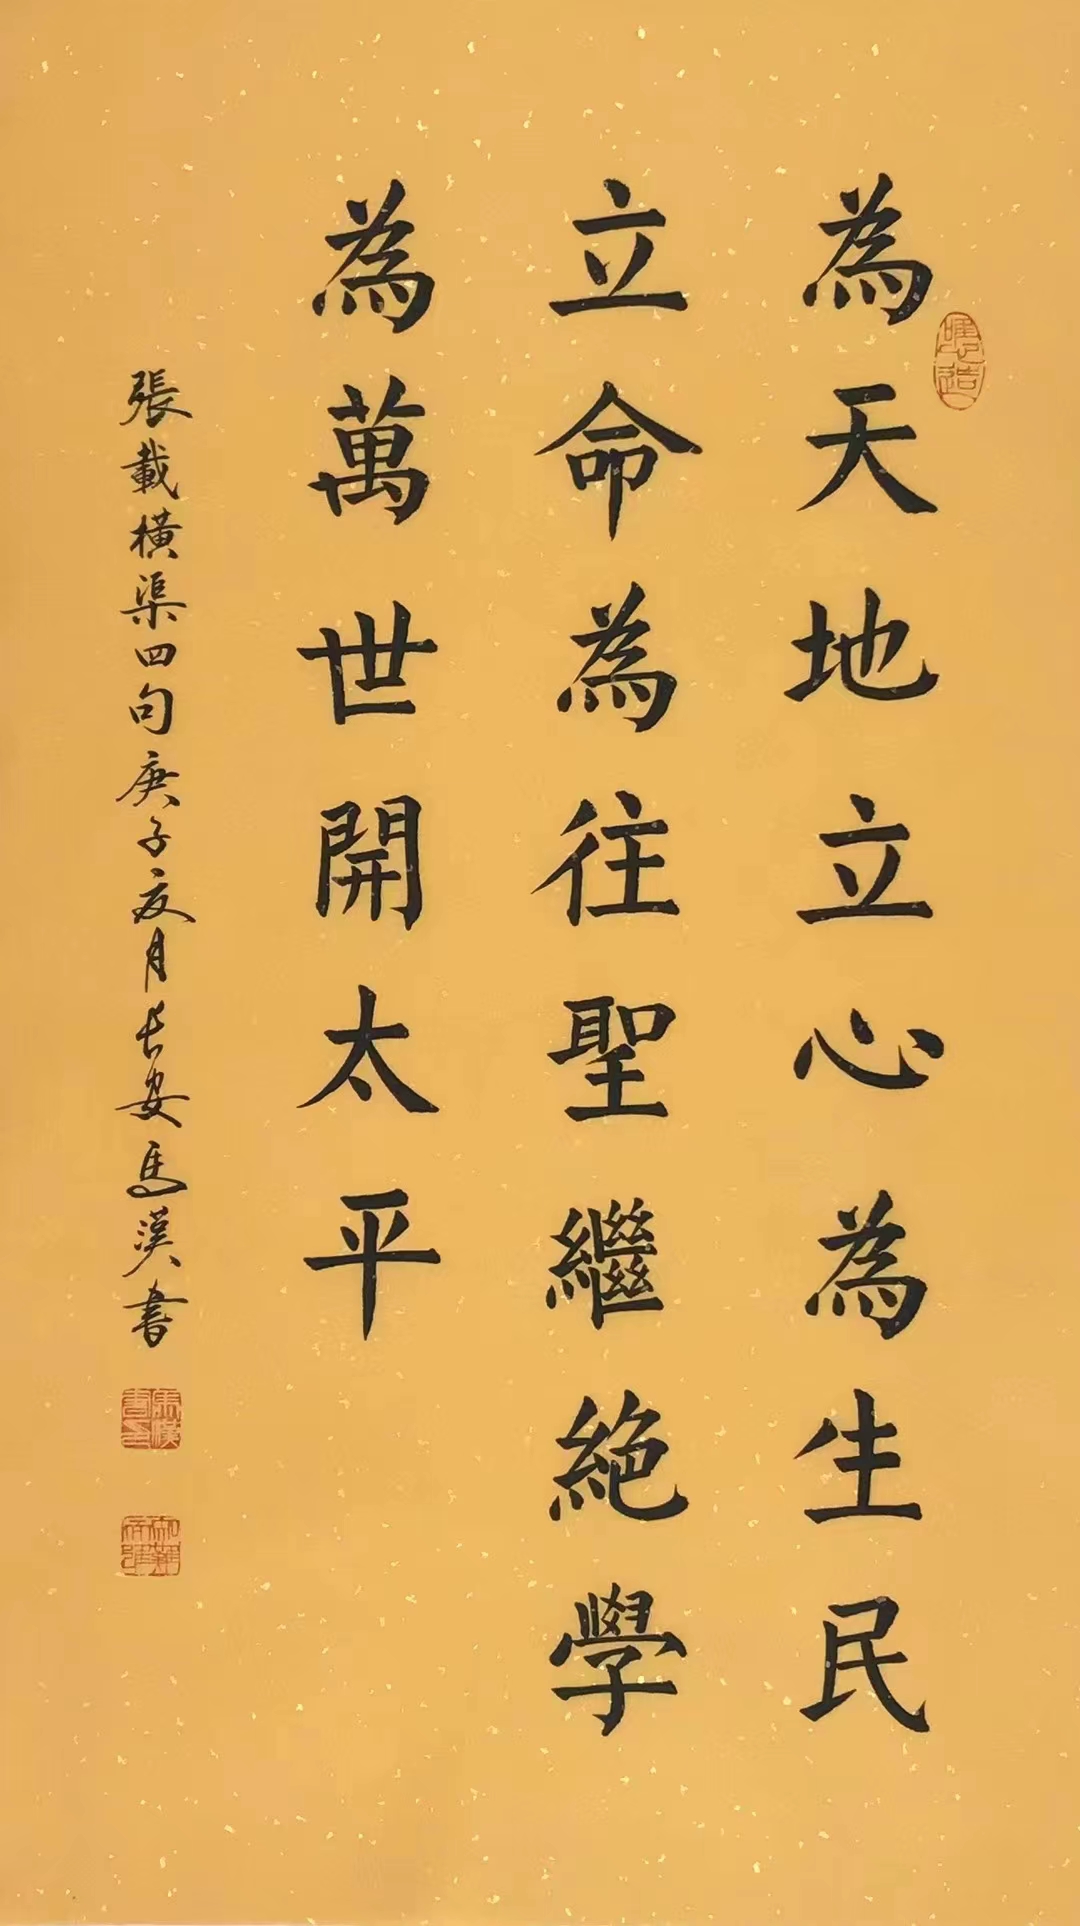 為天地立心為生民
立命為往聖繼絕學
為萬世開太平
張載橫渠四句庚子夏月長安馬漢書